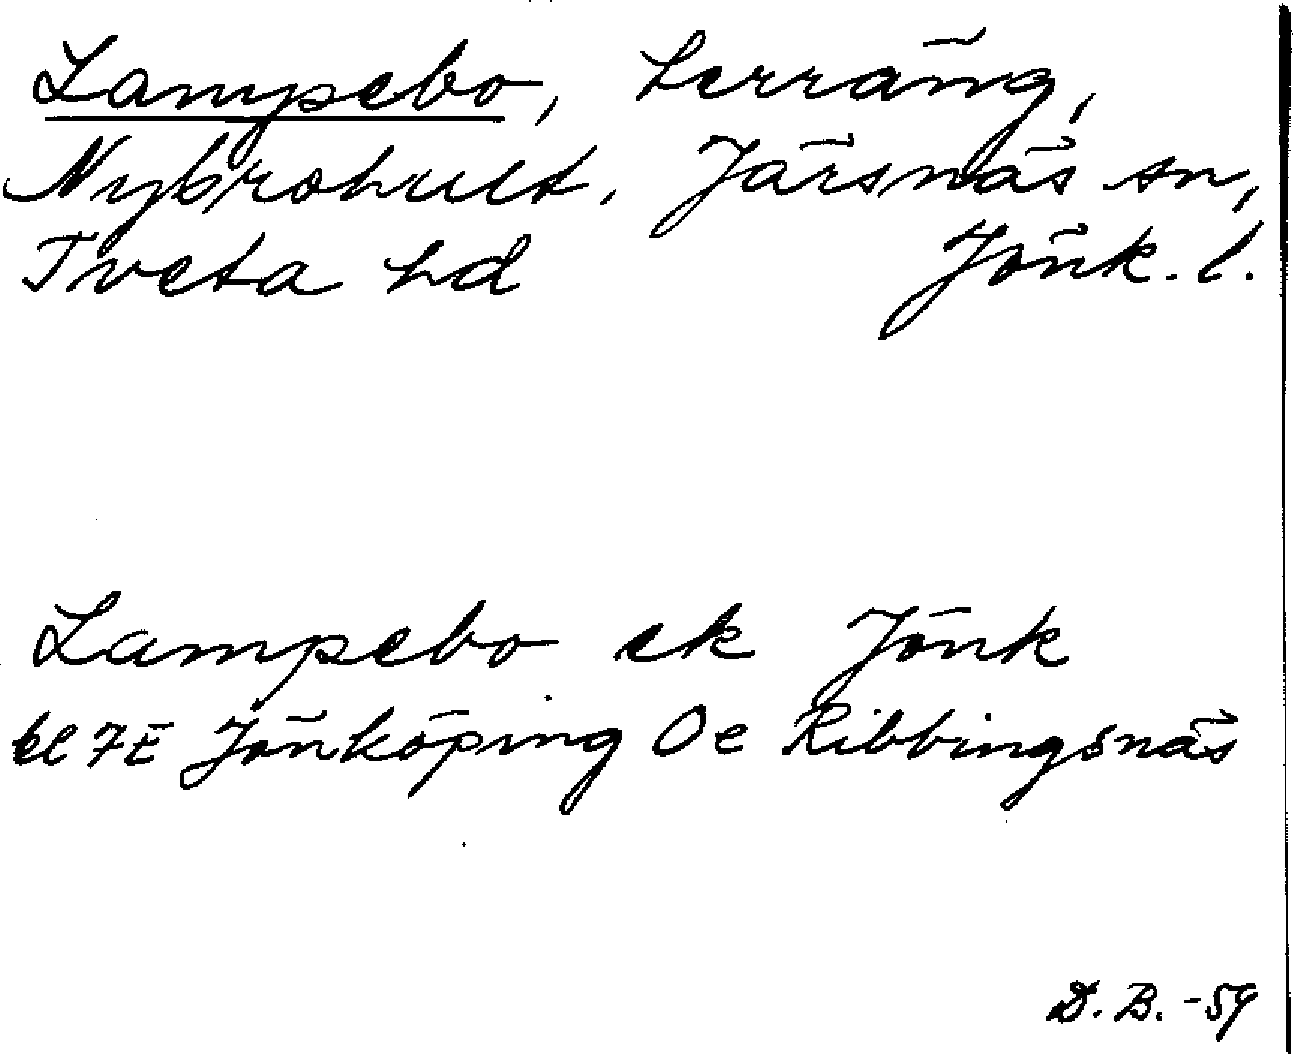 Lampebo, herräng,
Nybrohult, Järsnäs sn,
Tveta hd Jönk. l.
Lampebo ek Jönk
bl 7E Jönköping Oe Ribbingsnäs
D. B. -59